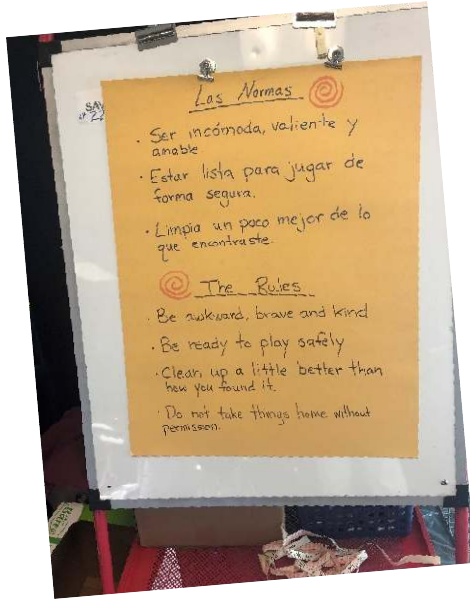 Las Normas
· Ser incómoda, valiente y
amable
· Estar lista para jugar de
forma segura.
· Limpia un poco mejor de lo
que encontraste.
The Rules
· Be awkward, brave and kind
· Be ready to play safely
· Clean up a little better than
how you found it.
· Do not take things home without
permission.